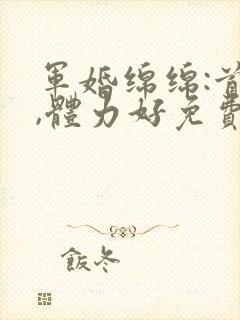 軍婚綿綿:首
,體力好免費
飯冬